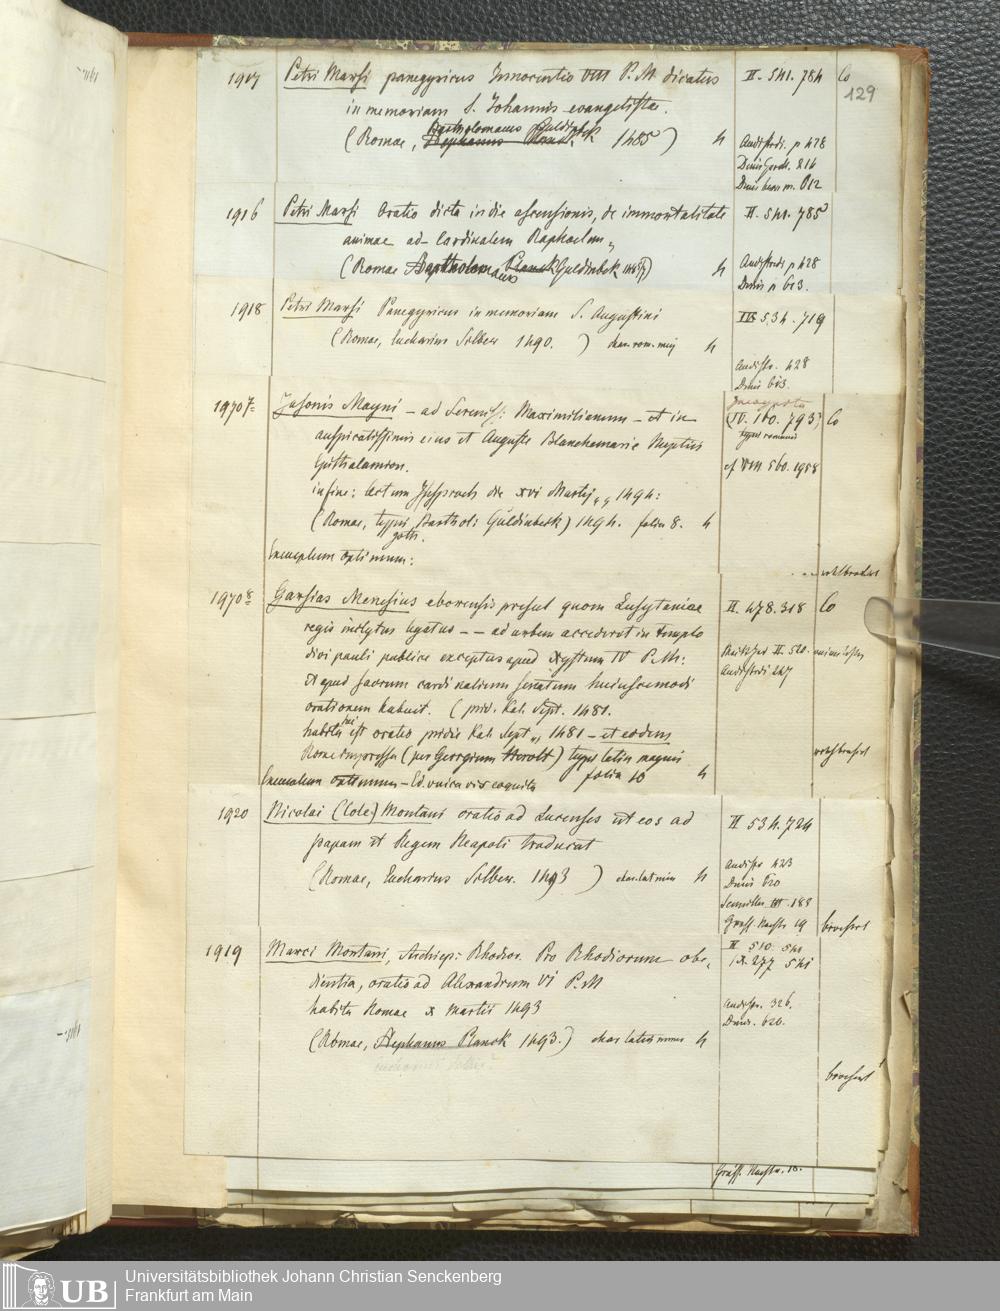 1917 Petri Marsi panegyricus Innocentio VIII P.M. dicatus II. 541. 784 Co
129
in memoriam S. Johannis evangelistae.
(Romae, Stephanus Planck Bartholomaeus Guldinbek 1485) 4 Audifredi. p 428
Denis 814
Denis 612
1916 Petri Marsi Oratio dicta in die ascensionis, de immortalitate II. 541. 785
animae ad Cardinalem Raphaelem
(Romae Bartholomaeus Planck Guldinbek) 4 Audifredi p 428
Denis p 613.
1918 Petri Marsi Panegyricus in memoriam S. Augustini III 534. 719
(Romae, Eucharius Silber 1490. ) char. rom. maj 4
Audifr. 428
Denis 613.
1970 7= Jasonis Mayni - ad Sereniss: Maximilianum - et in (IV. 160. 793) Co
auspicatissimis eius et Auguste Blanchemarie Nuptiis typis romanis
Epithalamion. cf VIII 560. 1958
in fine: actum die xvi Martij 1494:
(Romae, typis goth. Bartholi Guldinbeck) 1494. folia 8. 4
Exemplum optimum:
1970 8= Garsias Menesius eborensis presul quom Lusytaniae II. 478. 318 Co
regis inclytus legatus - - ad urbem accederet in templo
divi pauli publice exceptus apud Xystum IV P.M: II. 520.
et apud sacrum cardinalium senatum huiuscemodi Audifredi 247
orationem habuit. (prid. Kal. Sept. 1481.
habita est oratio pridie Kal. Sept., 1481 - et eodem
Rome impressa (per Georgium Herolt) typis latin magnis
folia 10 4
Exemplum optimum - Ed. unica vix cognita
1920 Nicolai (Cole) Montani oratio ad Lucenses ut eos ad II 534. 724
papam et Regem Neapoli traducat
(Romae, Eucharius Silber. 1493 ) char. lat min 4 Audifr 423
Denis 620
Seemiller III. 188
Graff. Nachtr. 19 brochirt
1919 Marci Montani, Archiep: Rhodior. Pro Rhodiorum obe- II 510 541
dientia, oratio ad Alexandrum VI P.M IX. 277 541
habita Romae x Martii 1493 Audifr. 326.
Denis. 620.
(Romae, Stephanus Planck 1493.) char latin minor 4
brochirt
Graff. Nachtr. 18.
UB
Universitätsbibliothek Johann Christian Senckenberg
Frankfurt am Main